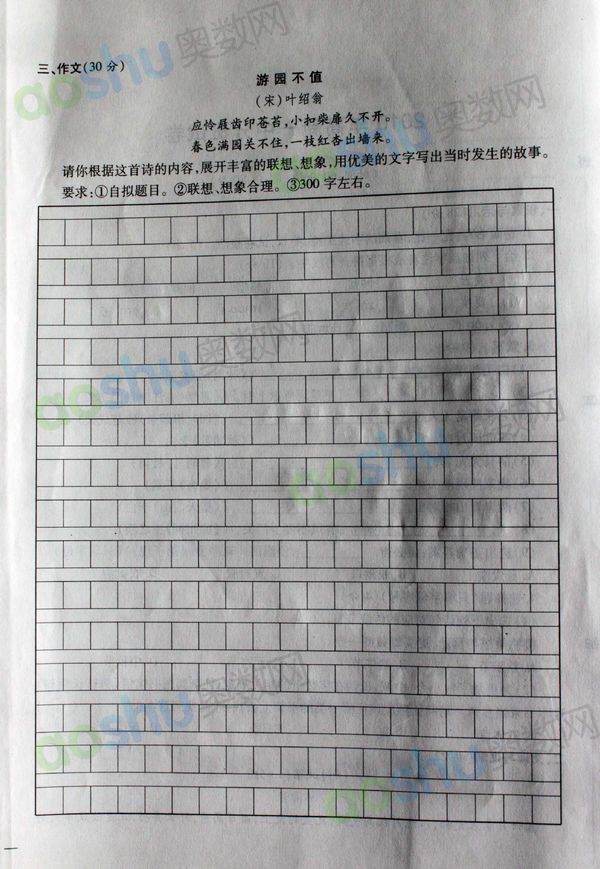 三、作文(30分)
游园不值
(宋)叶绍翁
应怜屐齿印苍苔,小扣柴扉久不开。
春色满园关不住,一枝红杏出墙来。
请你根据这首诗的内容,展开丰富的联想、想象,用优美的文字写出当时发生的故事。
要求:①自拟题目。②联想、想象合理。③300字左右。
aoshu奥数网
aoshu奥数网
aoshu奥数网
aoshu奥数网
aoshu奥数网
aoshu奥数网